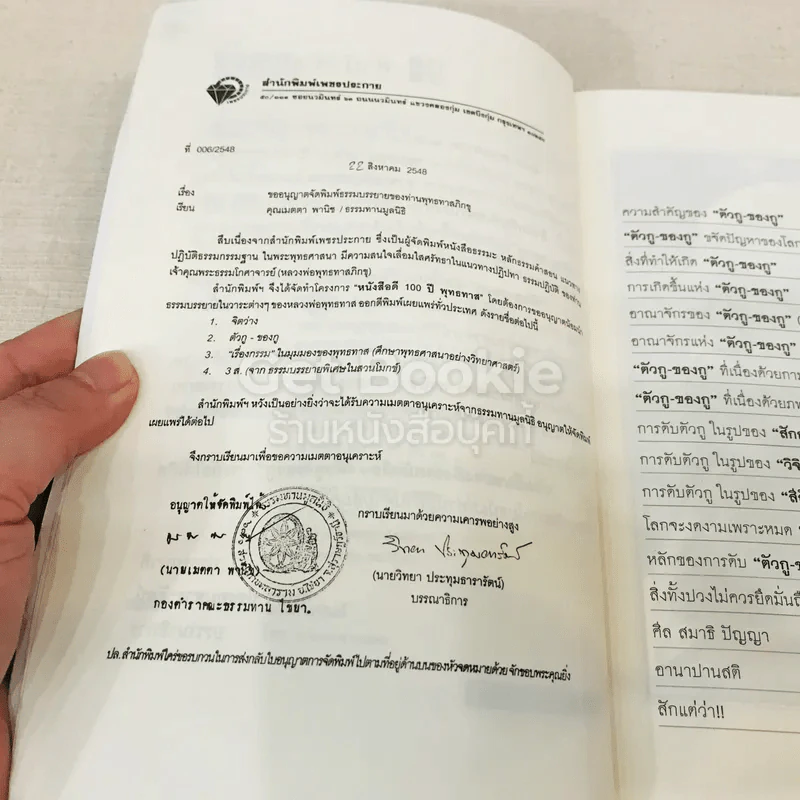 สำนักพิมพ์เพชรประกาย
๕๐/๑๑๑ ซอยนวมินทร์ ๖๑ ถนนนวมินทร์ แขวงคลองกุ่ม เขตบึงกุ่ม กรุงเทพฯ
ที่ 006/2548
๒๒ สิงหาคม 2548
เรื่อง ขออนุญาตจัดพิมพ์ธรรมบรรยายของท่านพุทธทาสภิกขุ
เรียน คุณเมตตา พานิช / ธรรมทานมูลนิธิ
สืบเนื่องจากสำนักพิมพ์เพชรประกาย ซึ่งเป็นผู้จัดพิมพ์หนังสือธรรมะ หลักธรรมคำสอน แนวทาง
ปฏิบัติธรรมกรรมฐาน ในพระพุทธศาสนา มีความสนใจเลื่อมใสศรัทธาในแนวทางปฏิปทา ธรรมปฏิบัติ ของท่าน
เจ้าคุณพระธรรมโกศาจารย์ (หลวงพ่อพุทธทาสภิกขุ)
สำนักพิมพ์ฯ จึงได้จัดทำโครงการ "หนังสือดี 100 ปี พุทธทาส" โดยต้องการขออนุญาต
ธรรมบรรยายในวาระต่างๆ ของหลวงพ่อพุทธทาส ออกตีพิมพ์เผยแพร่ทั่วประเทศ ดังรายชื่อต่อไปนี้
1. จิตว่าง
2. ตัวกู - ของกู
3. "เรื่องกรรม" ในมุมมองของพุทธทาส (ศึกษาพุทธศาสนาอย่างวิทยาศาสตร์)
4. 3 ส. (จาก ธรรมบรรยายพิเศษในสวนโมกข์)
Get Bookie
ร้านหนังสือบุคกี้
สำนักพิมพ์ฯ หวังเป็นอย่างยิ่งว่าจะได้รับความเมตตาอนุเคราะห์จากธรรมทานมูลนิธิ อนุญาตให้จัดพิมพ์
เผยแพร่ได้ต่อไป
จึงกราบเรียนมาเพื่อขอความเมตตาอนุเคราะห์
อนุญาตให้จัดพิมพ์ได้
กราบเรียนมาด้วยความเคารพอย่างสูง
ธรรมทานมูลนิธิ
(นายเมตตา พานิช)
(นายวิทยา ประทุมธารารัตน์)
กองตำราคณะธรรมทาน ไชยา.
บรรณาธิการ
ปล. สำนักพิมพ์ใคร่ขอรบกวนในการส่งกลับใบอนุญาตการจัดพิมพ์ไปตามที่อยู่ด้านบนของหัวจดหมายด้วย จักขอบพระคุณยิ่ง
ความสำคัญของ "ตัวกู-ของกู"
"ตัวกู-ของกู" ขจัดปัญหาของโลก
สิ่งที่ทำให้เกิด "ตัวกู-ของกู"
การเกิดขึ้นแห่ง "ตัวกู-ของกู"
อาณาจักรของ "ตัวกู-ของกู" (
อาณาจักรแห่ง "ตัวกู-ของกู"
"ตัวกู-ของกู" ที่เนื่องด้วยกาม
"ตัวกู-ของกู" ที่เนื่องด้วยภพ
การดับตัวกู ในรูปของ "สัก
การดับตัวกู ในรูปของ "วิจิ
การดับตัวกู ในรูปของ "สี
โลกจะงดงามเพราะหมด "
หลักของการดับ "ตัวกู-ของ
สิ่งทั้งปวงไม่ควรยึดมั่นถื
ศีล สมาธิ ปัญญา
อานาปานสติ
สักแต่ว่า!!